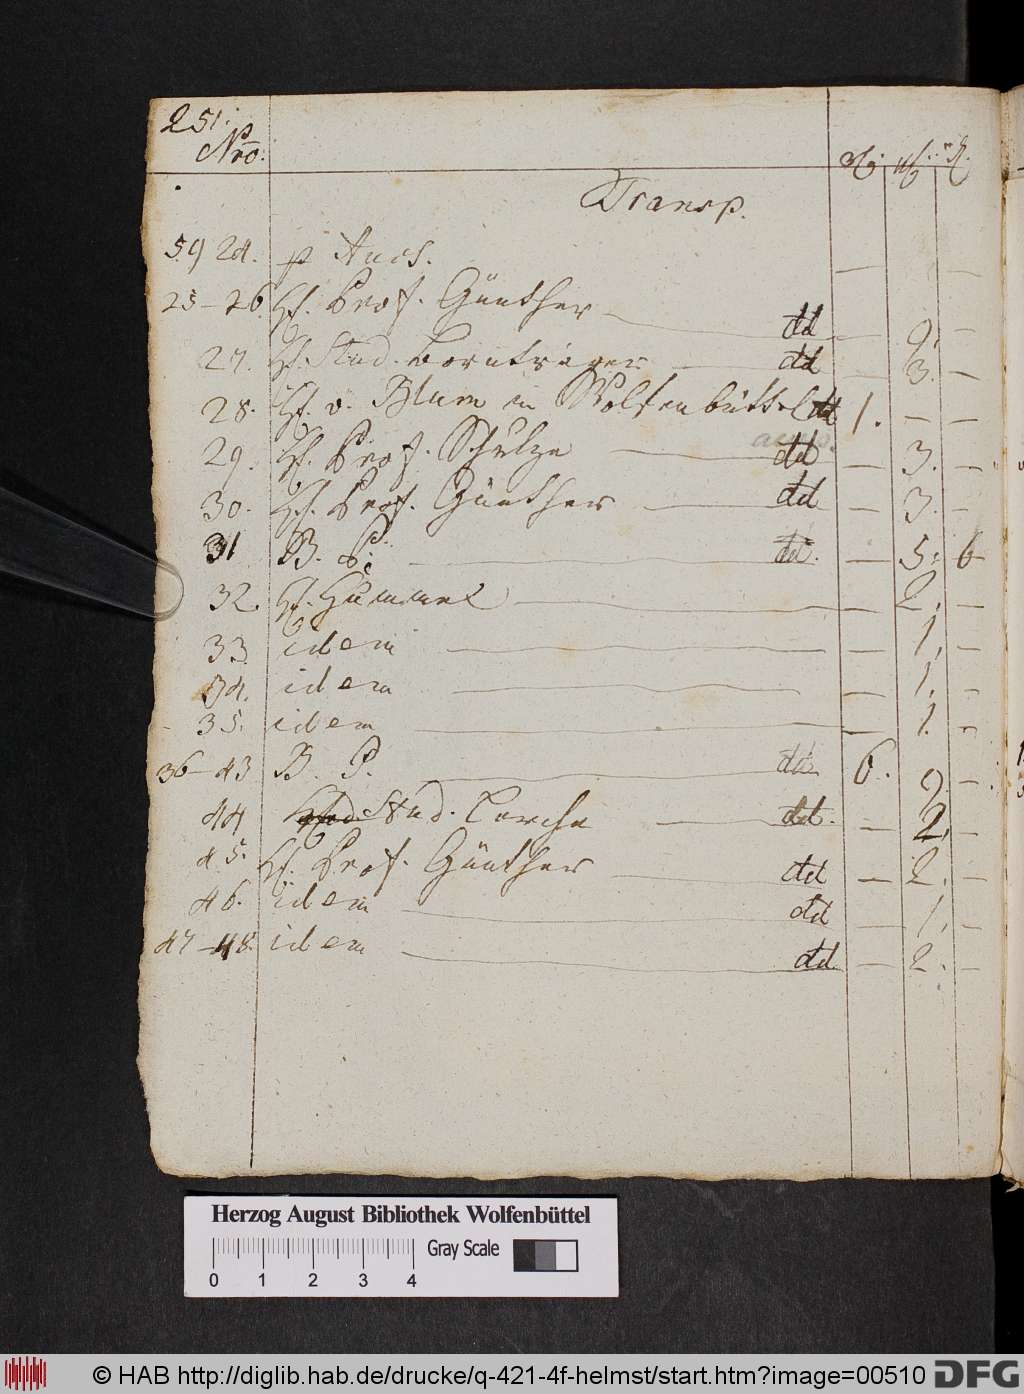 251.
Nro:
Transp.
5924. p Aucs.
25-26. H. Prof. Günther dd — 9. —
27. H. Stud. Borntraeger dd — 3. —
28. H. v. Blum in Wolfenbüttel dd 1. — —
29. H. Prof. Schulze dd — 3. —
30. H. Prof. Günther dd — 3. —
31 B. P. dd. — 5. 6
32. H. Hummel — 2. —
33. idem — 1. —
34. idem — 1. —
35. idem — 1. —
36-43 B. P. dd 6. 9. —
44 Stud. Lerche dd. — 2.
45. H. Prof. Günther dd — 2. —
46. idem dd — 1. —
47-48. idem dd. — 2. —
Herzog August Bibliothek Wolfenbüttel
Gray Scale
0 1 2 3 4
© HAB http://diglib.hab.de/drucke/q-421-4f-helmst/start.htm?image=00510 DFG